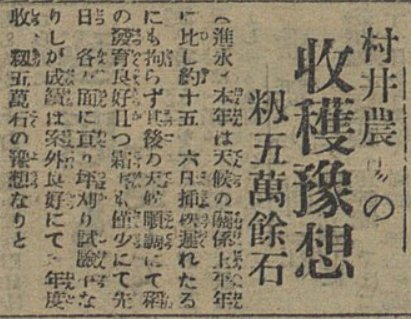 村井農場の
收穫豫想
籾五萬餘石
(進永)本年は天候の關係上平年
に比し約十五、六日挿秧遲れたる
にも拘らず其後の天候順調にて稻
の發育良好且つ も僅少にて先
日 各方面に亘り坪刈り試驗 な
りしが成績は案外良好にて 年度
收 籾五萬石の豫想なりと